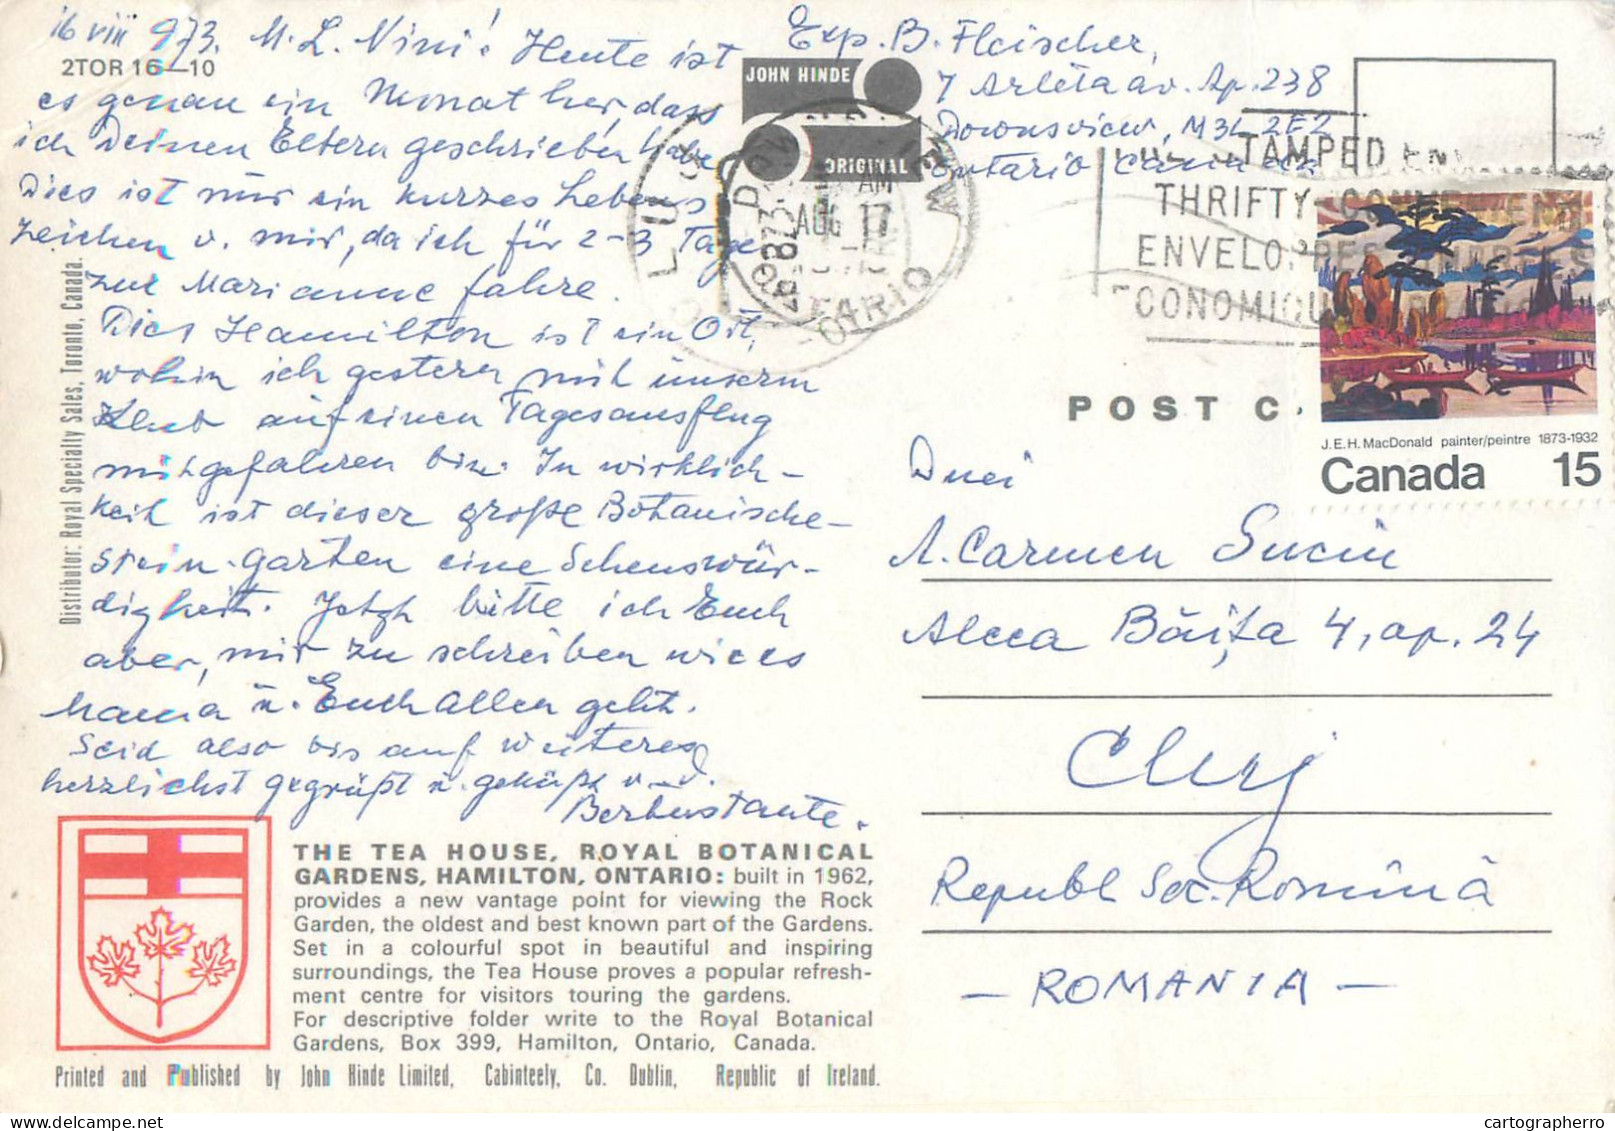 16 VIII 973. M. L. Nini! Heute ist
2TOR 16—10
es genau ein Monat her, dass
ich Deinen Eltern geschrieben habe
Dies ist nur ein kurzes Lebens
zeichen v. mir, da ich für 2-3 Tage
zur Marianne fahre.
Dies Hamilton ist ein Ort,
wohin ich gestern mit unserm
Klub auf einen Tagesausflug
mitgefahren bin. In wirklich-
keit ist dieser große Botanische-
stein-garten eine Sehenswür-
digkeit. Jetzt bitte ich Euch
aber, mir zu schreiben wie es
Mama u. Euch Allen geht.
Seid also bis auf weiteres
herzlichst gegrüßt u. geküßt v. d.
Bertustante.
Distributor: Royal Specialty Sales, Toronto, Canada.
JOHN HINDE
ORIGINAL
Exp. B. Fleischer,
7 Arleta av. Ap. 238
Downsview, M3L 2E2
Ontario Canada
AM
AUG 17
ONTARIO
CLUJ
STAMPED
THRIFTY
ENVELOPPES
ECONOMIQUE
J.E.H. MacDonald painter/peintre 1873-1932
Canada 15
POST C
Duei
A. Carmen Suciu
Aleea Băița 4, ap. 24
Cluj
Republ Soc. Română
— ROMANIA —
THE TEA HOUSE, ROYAL BOTANICAL
GARDENS, HAMILTON, ONTARIO: built in 1962,
provides a new vantage point for viewing the Rock
Garden, the oldest and best known part of the Gardens.
Set in a colourful spot in beautiful and inspiring
surroundings, the Tea House proves a popular refresh-
ment centre for visitors touring the gardens.
For descriptive folder write to the Royal Botanical
Gardens, Box 399, Hamilton, Ontario, Canada.
Printed and Published by John Hinde Limited, Cabinteely, Co. Dublin, Republic of Ireland.
cartographerro